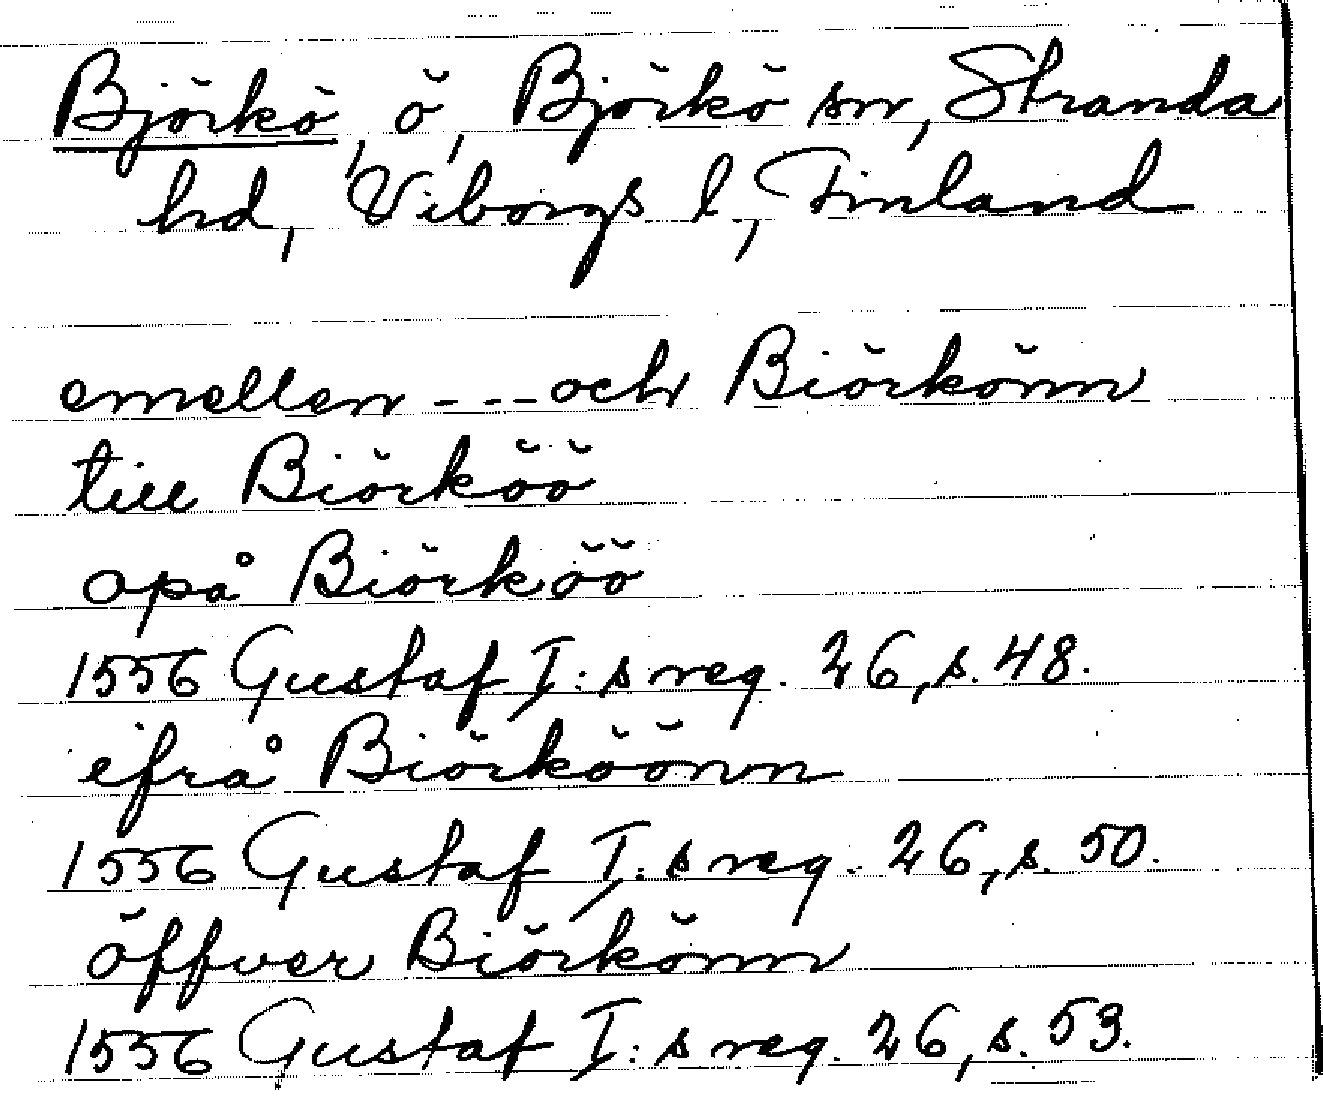 Björkö, ö, Björkö sn, Stranda
hd, Viborgs l, Finland
emellen - - - och Biörkönn
till Biörköö
opå Biörköö
1556 Gustaf I:s reg. 26, s. 48.
ifrå Biörköönn
1556 Gustaf I:s reg. 26, s. 50.
öffver Biörkönn
1556 Gustaf I:s reg. 26, s. 53.